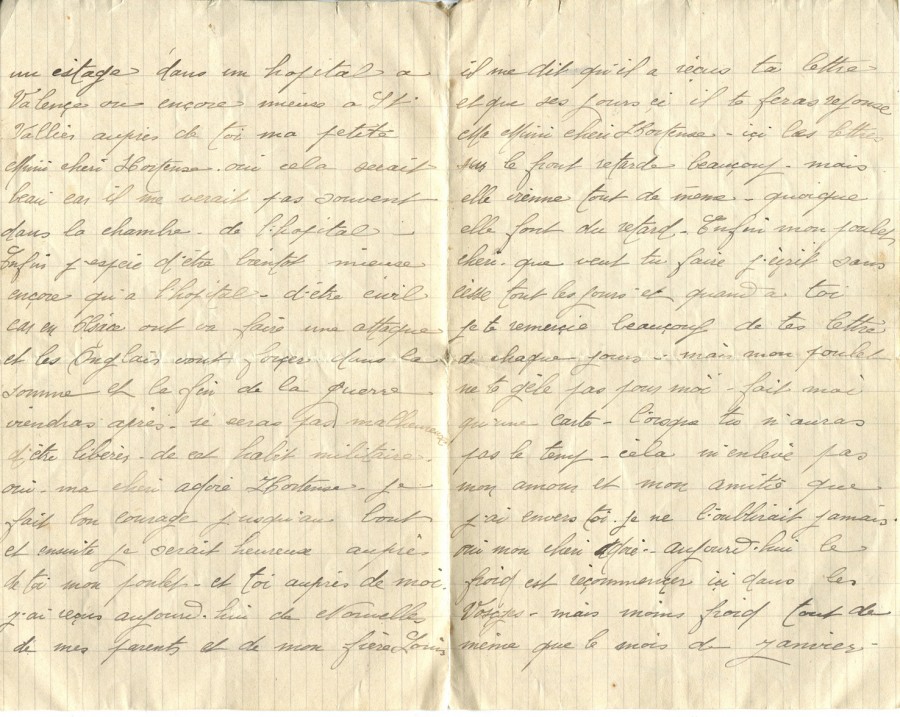 un estage dans un hopital a
Valençe ou encore mieus a St
Vallier aupres de toi ma petite
Mimi cheri Hortense. oui cela serait
beau car il me verait pas souvent
dans la chambre - de l'hopital -
Enfin j'espere d'être bientot mieuse
encore qu'a l'hopital - d'être civil
car en ont va faire une attaque
et les Englais vont forçer dans la
somme et la fin de la guerre
viendras après - je seras pas malheureux
d'être libères - de cet habit militaire -
oui - ma cheri adoré Hortense - je
fait bon courage jusqu'au bout
et ensuite je serait heureux auprès
de toi mon poulet - et toi auprès de moi.
j'ai reçus aujourd'hui de Nouvelles
de mes parents et de mon frère Louis
il me dit qu'il a reçus ta lettre
et que ses jours ci il te feras reponse
Mimi cheri Hortense - içi les lettres
sur le front retarde beaucoup - mais
elle vienne tout de même - quoique
elle font du retard - Enfin mon poulet
cheri - que veut tu faire j'écrit sans
cesse tout les jours et quand a toi
je te remerçie beaucoup de tes lettre
de chaque jours - mais mon poulet
ne te gèle pas pour moi - fait moi
qu'une carte - l'orsque tu n'auras
pas le temp - cela m'enlève pas
mon amour et mon amitié que
j'ai envers toi. je ne l'oublirait jamais.
oui mon cheri adoré - aujourd'hui le
froid est reçommençer içi dans les
Vosges - mais moins froid tout de
même que le mois de janvier -